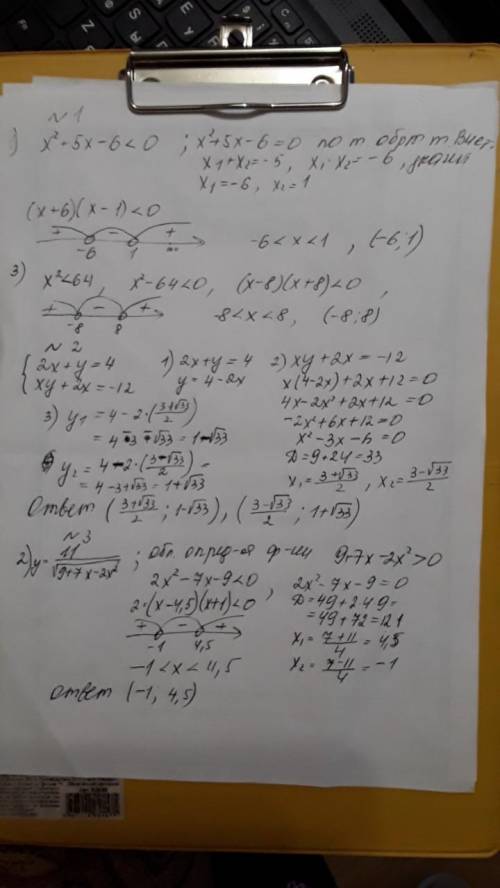 №1
) x²+5x-6<0 ; x²+5x-6=0 по т обрт т Виет.
x₁+x₂=-5, x₁·x₂=-6,
x₁=-6, x₂=1
(x+6)(x-1)<0
+ - +
-6 1
-6<x<1, (-6;1)
3) x²<64, x²-64<0, (x-8)(x+8)<0,
+ - +
-8 8
-8<x<8, (-8;8)
№2
{ 2x+y=4
xy+2x=-12
1) 2x+y=4
y=4-2x
2) xy+2x=-12
x(4-2x)+2x+12=0
4x-2x²+2x+12=0
-2x²+6x+12=0
x²-3x-6=0
D=9+24=33
x₁=(3+√33)/2, x₂=(3-√33)/2
3) y₁=4-2·((3+√33)/2)
=4-3-√33=1-√33
y₂=4-2·((3-√33)/2)=
=4-3+√33=1+√33
Ответ ((3+√33)/2; 1-√33), ((3-√33)/2; 1+√33)
№3
2) y=11/√(9+7x-2x²) ; обл. опред-ия ф-ции 9+7x-2x²>0
2x²-7x-9<0,
2·(x-4,5)(x+1)<0
+ - +
-1 4,5
-1<x<4,5
2x²-7x-9=0
D=49+249=
=49+72=121
x₁=(7+11)/4=4,5
x₂=(7-11)/4=-1
Ответ (-1; 4,5)